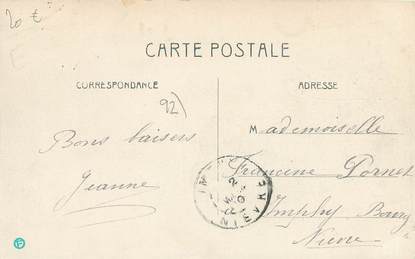 20 €
E
CARTE POSTALE
CORRESPONDANCE
ADRESSE
92)
Mademoiselle
Bons baisers
Francine Pornet
Jeanne
Imphy Bourg
Nièvre
NIEVRE